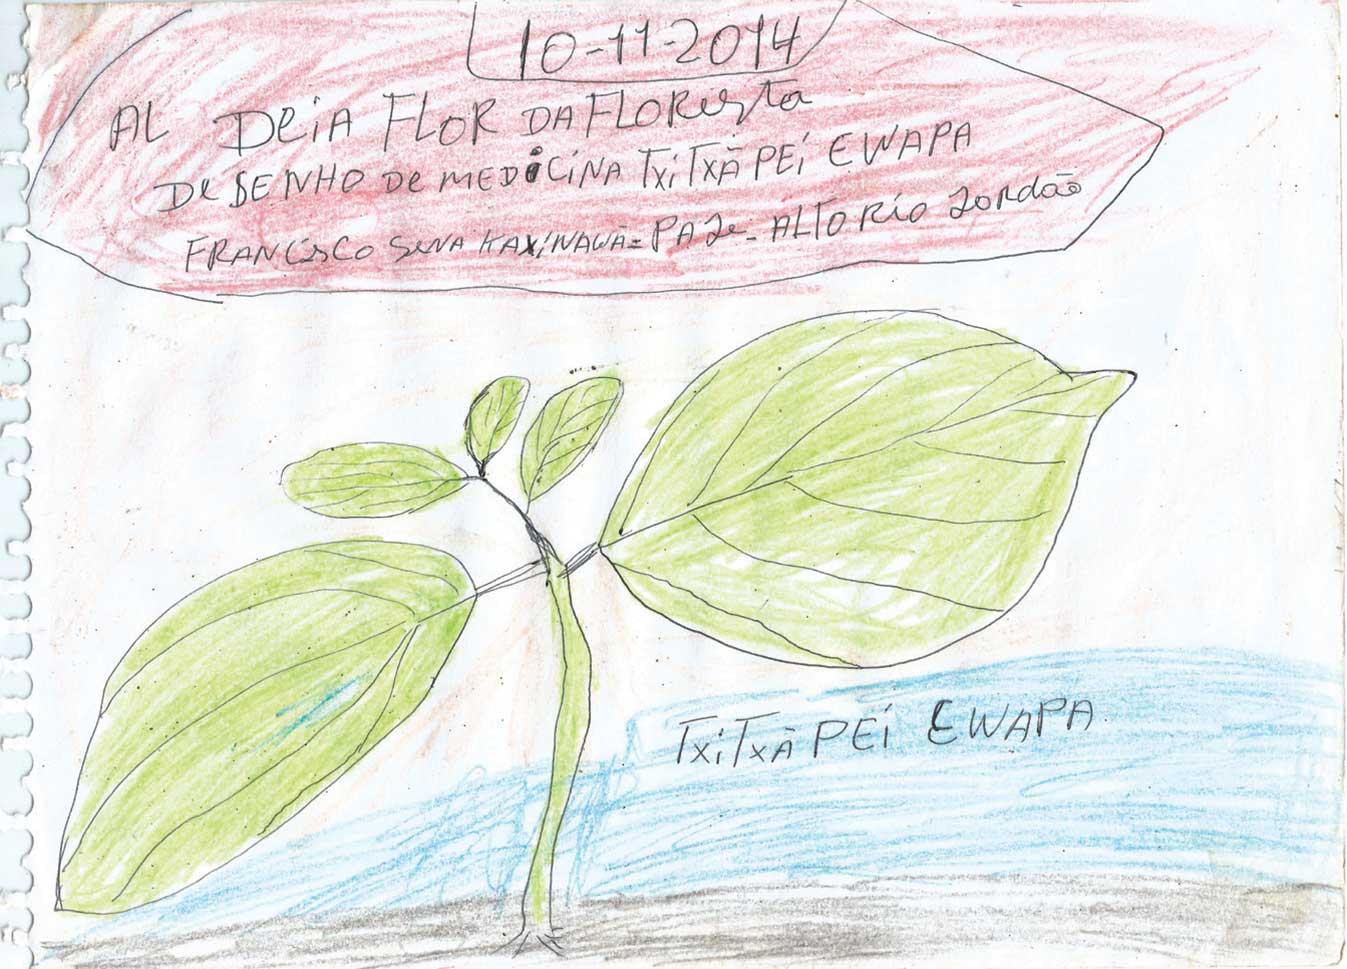 10-11-2014
AL DEiA FLOR DA FLORESta
DESENHO DE MEDiCiNA TXiTXÃ PEÍ EWAPA
FRANCiSCO SENA KAXiNAWÃ = PAJE - ALTO RÍO JORdão
TXiTXÃ PEÍ EWAPA